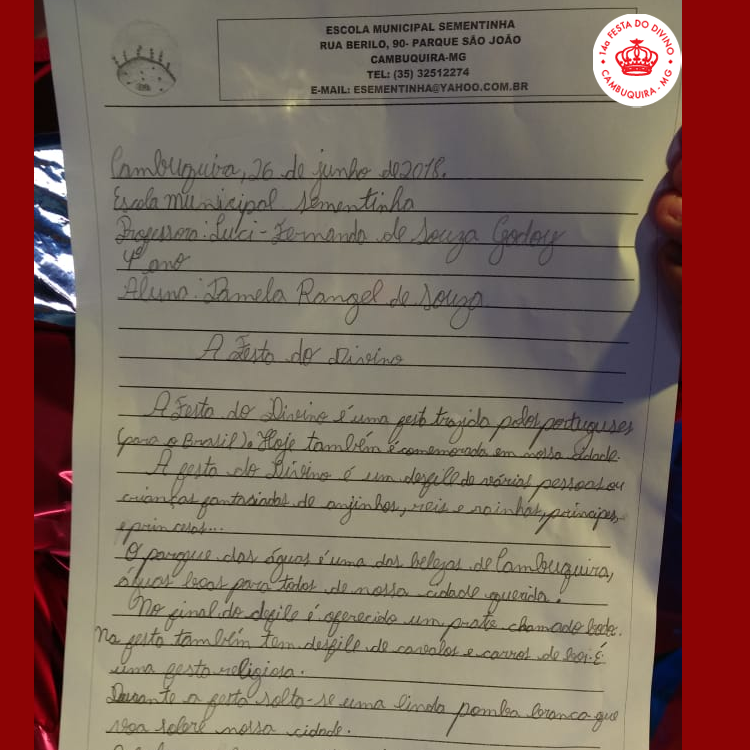 ESCOLA MUNICIPAL SEMENTINHA
RUA BERILO, 90- PARQUE SÃO JOÃO
CAMBUQUIRA-MG
TEL: (35) 32512274
E-MAIL: ESEMENTINHA@YAHOO.COM.BR
14ª FESTA DO DIVINO
CAMBUQUIRA - MG
Cambuquira, 26 de junho de 2018.
Escola Municipal Sementinha
Professora: Luci-Fernanda de Souza Godoy
4º ano
Aluna: Pamela Rangel de Souza
A Festa do Divino
A Festa do Divino é uma festa trazida pelos portugueses
(para o Brasil). Hoje também é comemorada em nossa cidade.
A festa do Divino é um desfile de várias pessoas ou
crianças fantasiadas de anjinhos, reis e rainhas, príncipes
e princesas...
O parque das águas é uma das belezas de Cambuquira,
águas boas para todos de nossa cidade querida.
No final do desfile é oferecido um prato chamado bodo.
Na festa também tem desfile de cavalos e carros de boi. É
uma festa religiosa.
Durante a festa solta-se uma linda pomba branca que
voa sobre nossa cidade.